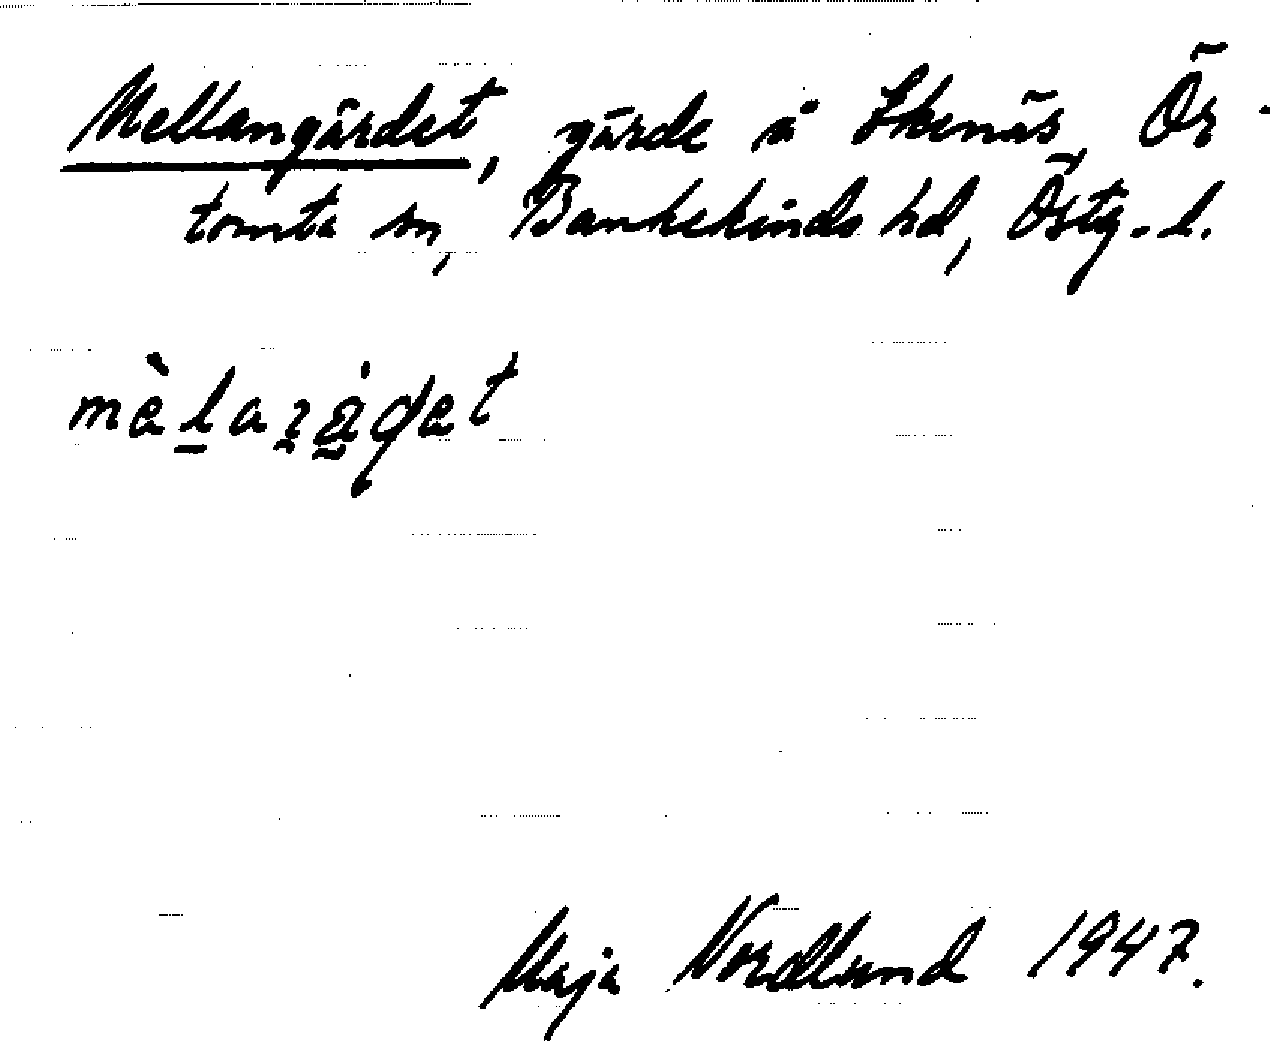 Mellangärdet, gärde å Skenäs, Ör-
tomta sn, Bankekinds hd, Östg. l.
Maja Nordlund 1947.